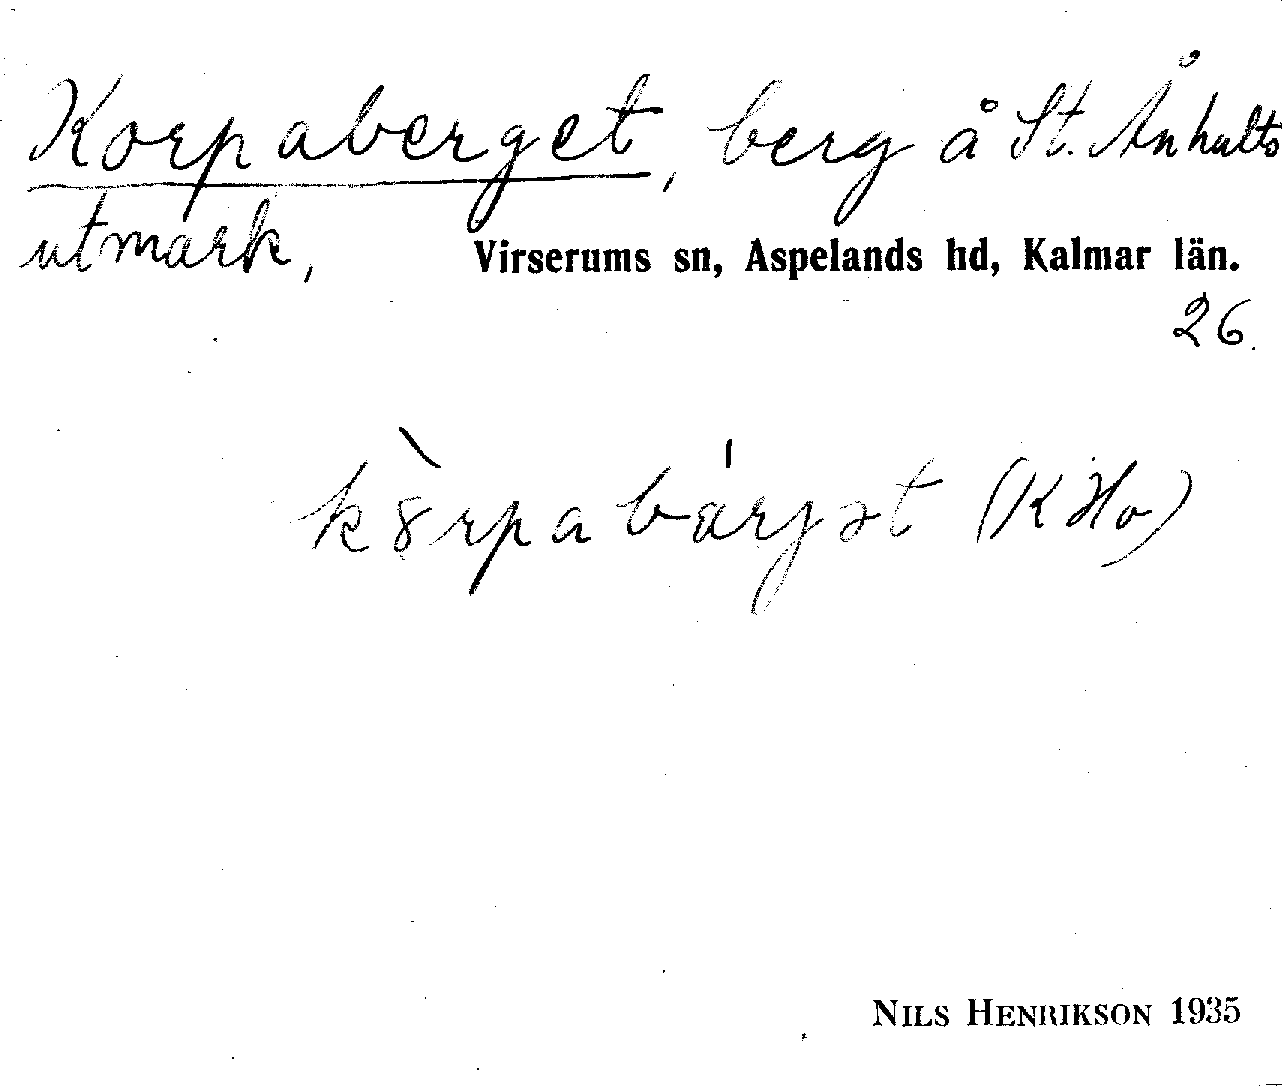 Korpaberget, berg å St. Ånhults
utmark, Virserums sn, Aspelands hd, Kalmar län.
26.
(K Ho)
NILS HENRIKSON 1935